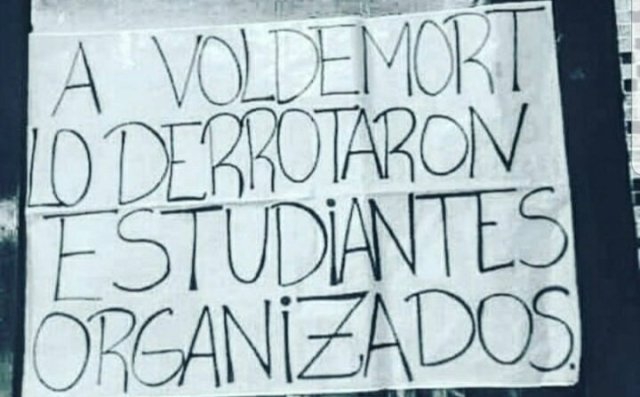 A VOLDEMORT
LO DERROTARON
ESTUDiANTES
ORGANiZADOS.